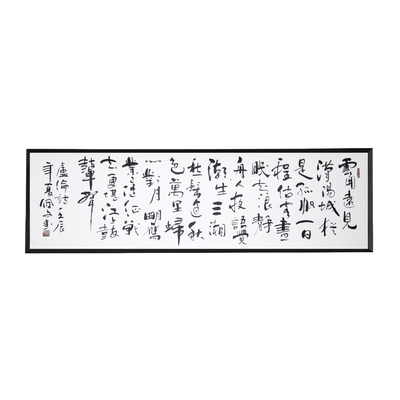 雲開遠見
漢陽城猶
是孤帆一日
程估客晝
眠知浪靜
舟人夜語覺
潮生三湘
愁鬢逢秋
色萬里歸
心對月明舊
業已隨征戰
盡更堪江上鼓
鼙聲
盧綸詩壬辰
年夏書